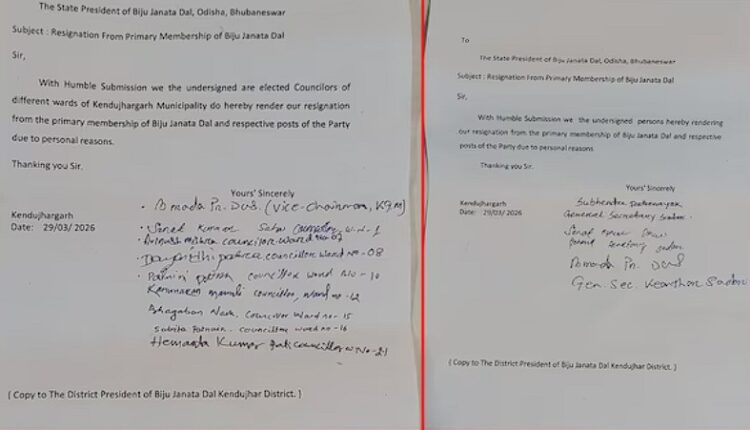 The State President of Biju Janata Dal, Odisha, Bhubaneswar
Subject : Resignation From Primary Membership of Biju Janata Dal
Sir,
With Humble Submission we the undersigned are elected Councilors of
different wards of Kendujhargarh Municipality do hereby render our resignation
from the primary membership of Biju Janata Dal and respective posts of the Party
due to personal reasons.
Thanking you Sir.
Yours' Sincerely
Kendujhargarh
Date: 29/03/2026
Pr. Das. (Vice-Chairman,
Kumar
councilor ward
councillor ward no-08
councillor ward No-10
councillor, ward no-12
Bhagaban ward no-15
councillor ward no-16
Hemanta Kumar No-21
( Copy to The District President of Biju Janata Dal Kendujhar District. )
To
The State President of Biju Janata Dal, Odisha, Bhubaneswar
Subject : Resignation From Primary Membership of Biju Janata Dal
Sir,
With Humble Submission we the undersigned persons hereby rendering
our resignation from the primary membership of Biju Janata Dal and respective
posts of the Party due to personal reasons.
Thanking you Sir.
Yours' Sincerely
Kendujhargarh
Date: 29/03/2026
Subhendra
General Secretary
Pr. Das
Gen. Sec. Keonjhar Sadar
( Copy to The District President of Biju Janata Dal Kendujhar District. )